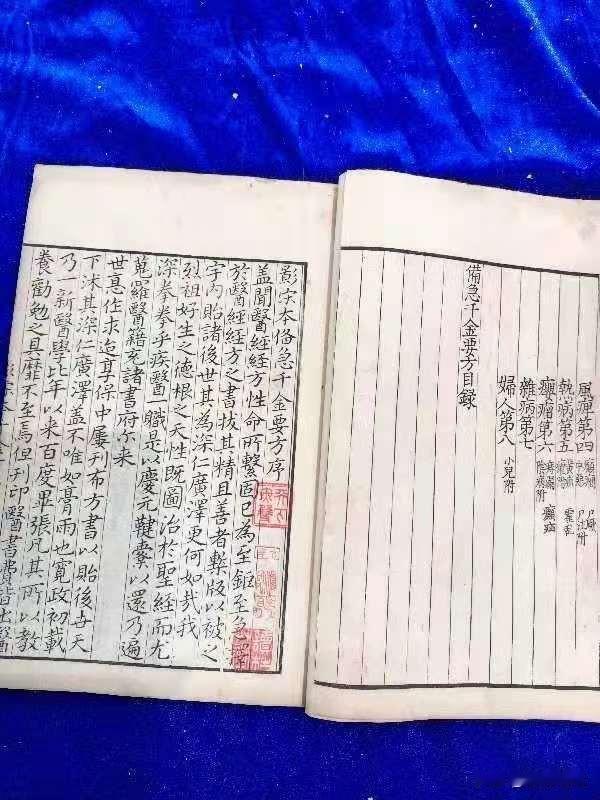 風痺第四
熱病第五
癭瘤第六
雜病第七
婦人第八 小兒附
備急千金要方目錄
影宋本俻急千金要方序
蓋聞醫經經方性命所繫固已為至鉅至急擇
於醫經經方之書拔其精且善者鍥版以被之
宇內貽諸後世其為深仁廣澤更何如哉我
烈祖好生之德根之天性既圖治於聖經而尤
深拳拳乎疾醫一職是以慶元鞬櫜以還乃遍
蒐羅醫籍充諸書府尔来
世悳作求迨享保中屢刋布方書以貽後每天
下沐其深仁廣澤蓋不唯如膏雨也寬政初載
乃新醫學比年以来百度畢張凡其所以教
養勸勉之具靡不至焉但刋印醫書費皆出醫
影宋本